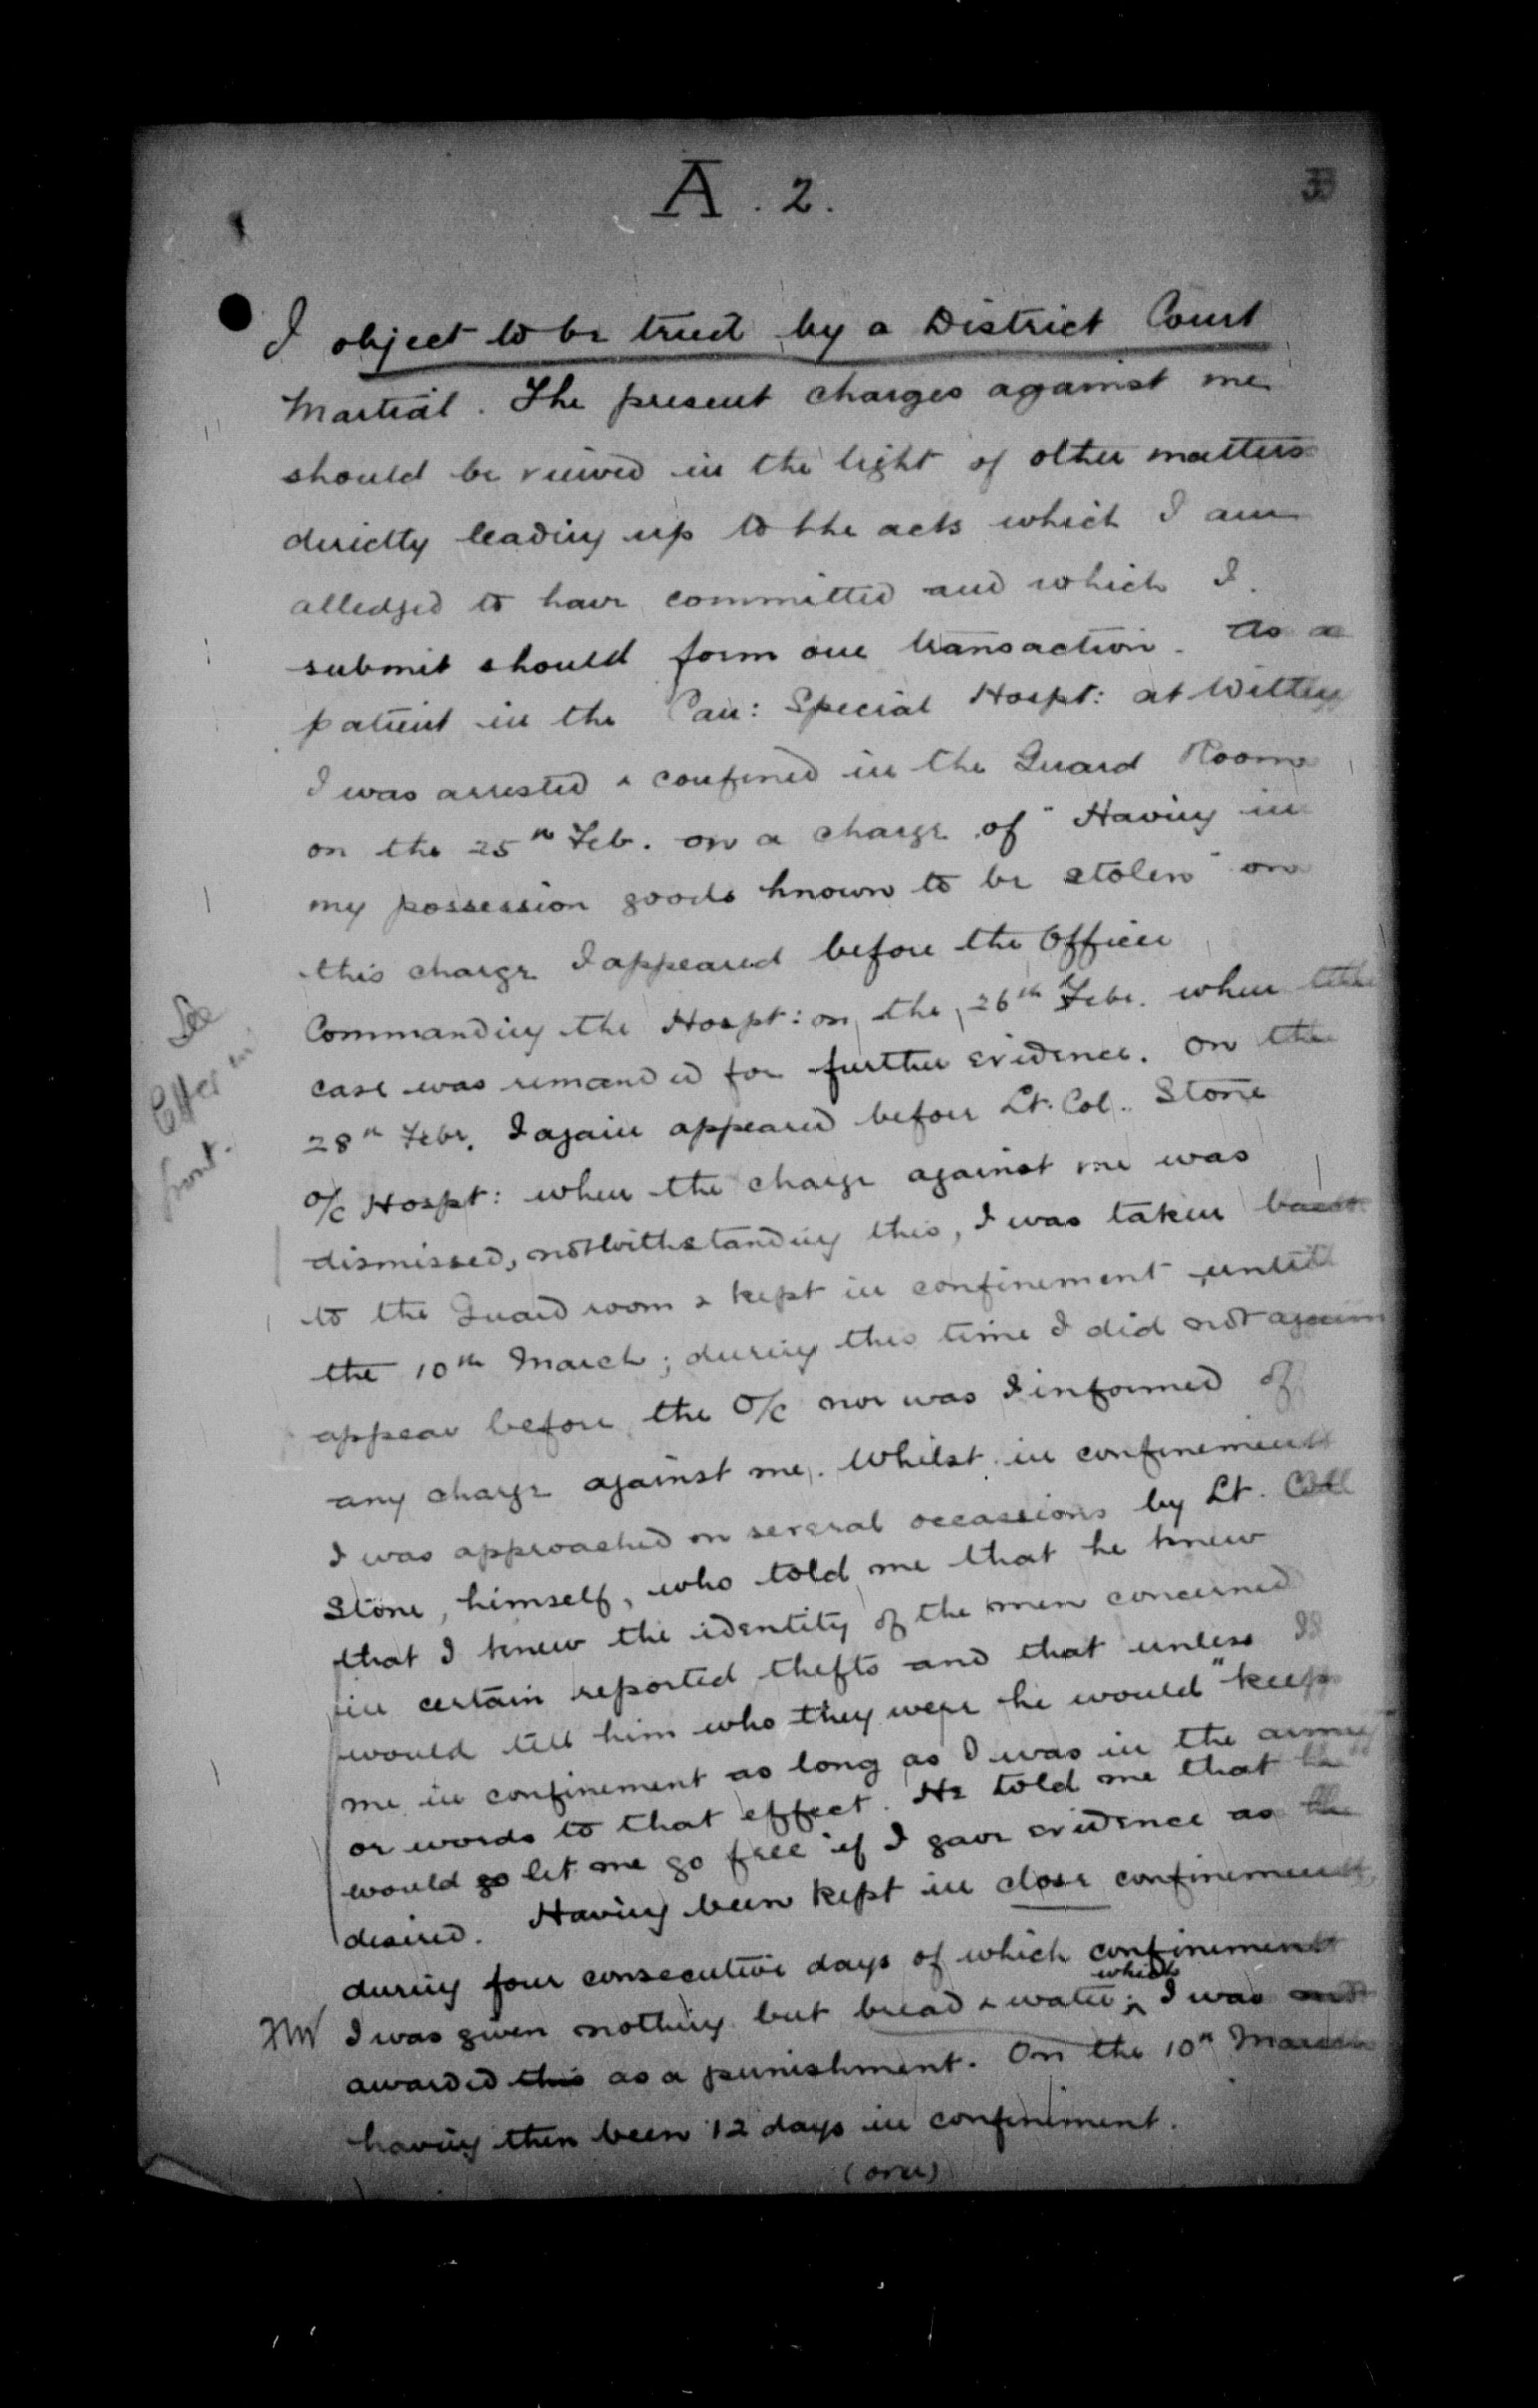 A. 2.
33
I object to be tried by a District Court
Martial. The present charges against me
should be viewed in the light of other matters
directly leading up to the acts which I am
alledged to have committed and which I
submit should form one transaction. As a
patient in the Can: Special Hospt: at Witley
I was arrested & confined in the Guard Room
on the 25th Feb. on a charge of "Having in
my possession goods known to be stolen" on
this charge I appeared before the Officer
Commanding the Hospt: on the 26th Febr. when the
case was remanded for further evidence. On the
28th Febr. I again appeared before Lt. Col. Stone
O/c Hospt: when the charge against me was
dismissed, notwithstanding this, I was taken back
to the Guard room & kept in confinement until
the 10th March; during this time I did not again
appear before the O/c nor was I informed of
any charge against me. Whilst in confinement
I was approached on several occassions by Lt. Coll
Stone, himself, who told me that he knew
that I knew the identity of the men concerned
in certain reported thefts and that unless I
would tell him who they were he would "keep
me in confinement as long as I was in the army"
or words to that effect. He told me that he
would go let me go free if I gave evidence as he
desired. Having been kept in close confinement
during four consecutive days of which confinement
I was given nothing but bread & water; which I was not
awarded this as a punishment. On the 10th March
having then been 12 days in confinement.
(over)
See
letter in
front.